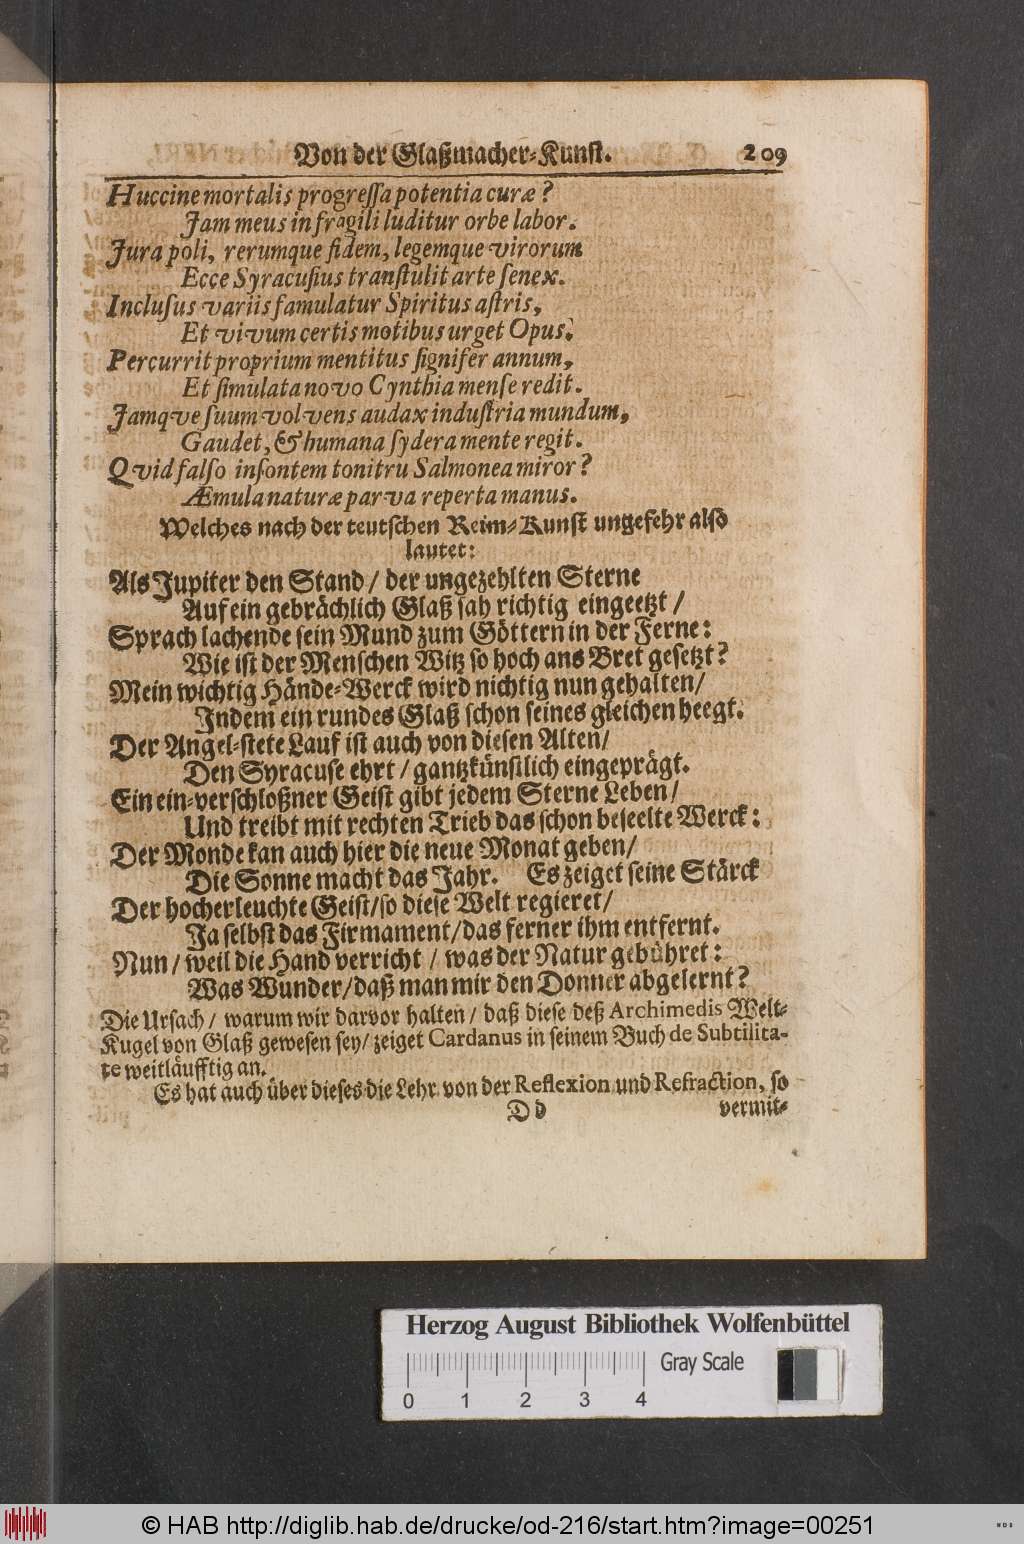 Von der Glaßmacher-Kunst. 209
Huccine mortalis progreſſa potentia curæ?
Jam meus in fragili luditur orbe labor.
Jura poli, rerumque fidem, legemque virorum
Ecce Syracuſius tranſtulit arte ſenex.
Incluſus variis famulatur Spiritus aſtris,
Et vivum certis motibus urget Opus.
Percurrit proprium mentitus ſignifer annum,
Et ſimulata novo Cynthia menſe redit.
Jamqve ſuum volvens audax induſtria mundum,
Gaudet, & humana ſydera mente regit.
Qvid falſo inſontem tonitru Salmonea miror?
Æmula naturæ parva reperta manus.
Welches nach der teutſchen Reim-Kunſt ungefehr alſo
lautet:
Als Jupiter den Stand / der ungezehlten Sterne
Auf ein gebrächlich Glaß ſah richtig eingeetzt /
Sprach lachende ſein Mund zum Göttern in der Ferne:
Wie iſt der Menſchen Witz ſo hoch ans Bret geſetzt?
Mein wichtig Hände-Werck wird nichtig nun gehalten/
Indem ein rundes Glaß ſchon ſeines gleichen heegt.
Der Angel-ſtete Lauf iſt auch von dieſen Alten/
Den Syracuſe ehrt / gantz künſtlich eingeprägt.
Ein ein-verſchloßner Geiſt gibt jedem Sterne Leben/
Und treibt mit rechten Trieb das ſchon beſeelte Werck:
Der Monde kan auch hier die neue Monat geben/
Die Sonne macht das Jahr. Es zeiget ſeine Stärck
Der hocherleuchte Geiſt/ ſo dieſe Welt regieret/
Ja ſelbſt das Firmament/ das ferner ihm entfernt.
Nun / weil die Hand verricht / was der Natur gebühret:
Was Wunder/ daß man mir den Donner abgelernt?
Die Urſach / warum wir darvor halten / daß dieſe deß Archimedis Welt-
Kugel von Glaß geweſen ſey/ zeiget Cardanus in ſeinem Buch de Subtilita-
te weitläufftig an.
Es hat auch über dieſes die Lehr von der Reflexion und Refraction, ſo
D d vermit-
Herzog August Bibliothek Wolfenbüttel
Gray Scale
0 1 2 3 4
© HAB http://diglib.hab.de/drucke/od-216/start.htm?image=00251